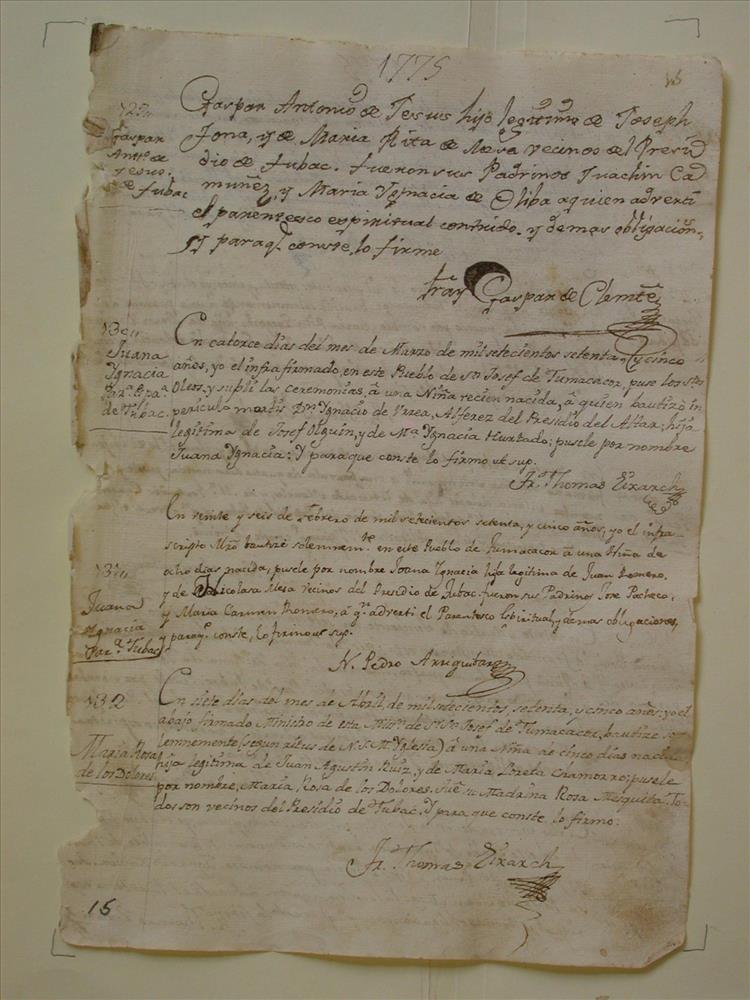 1775
15
129
Gaspar
Antº de
Jesus,
de Tubac
Gaspar Antonio de Jesus hijo legitimo de Joseph
Jona, y de Maria Rita de Mesa vecinos del Presi
dio de Tubac. fueron sus Padrinos Juachin Ca
muñez, y Maria Ygnacia de Oliba a quien adverti
el parentesco espiritual contrido, y demas obligacion,
y para qe conste, lo firme
Fray Gaspar de Clemte
130
Juana
Ygnacia
Par.ª Espª
de Tubac
En catorce dias del mes de Marzo de mil setecientos setenta, y cinco
años, yo el infrafirmado, en este Pueblo de Sn Josef de Tumacacor, puse los Stos
Oleos, y suplí las ceremonias, â una Niña recien nacida, â quien bautizò in
periculo mortis Dn Ygnacio de Urrea, Alferez del Presidio del Altar, hija
legitima de Josef Olguin, y de Mª Ygnacia Hurtado; pusele por nombre
Juana Ygnacia: Y para que conste lo firmo ut sup.
Fr. Thomas Eixarch
131
Juana
Ygnacia
Par.ª Tubac
En veinte y seis de febrero de mil setecientos setenta, y cinco años, yo el infra-
scripto Mro bautizé solemnemte en este Pueblo de Tumacacor â una Niña de
ocho dias nacida, pusele por nombre Joana Ygnacia hija legitima de Juan Romero,
y de Nicolasa Mesa vecinos del Presidio de Tubac. fueron sus Padrinos Jose Pacheco,
y Maria Carmen Romero, â qn adverti el Parentesco Espiritual, y demas obligaciones,
y paraq. conste, lo firmo ut sup.
Fr. Pedro Arriquibar
132
Maria Rosa
de los Dolores
En siete dias del mes de Abril de mil setecientos setenta, y cinco años: yo el
abajo firmado Ministro de esta Misn de Sn Josef de Tumacacor, bautize so
lemnemente (segun ritus de N. S. M. Yglesia) â una Niña de cinco dias nacida
hija legitima de Juan Agustin Ruiz, y de Maria Loreta Chamorro; pusele
por nombre, Maria Rosa de los Dolores. Fuè su Madrina Rosa Mesquita. To
dos son vecinos del Presidio de Tubac. Y para que conste lo firmo.
Fr. Thomas Eixarch
15